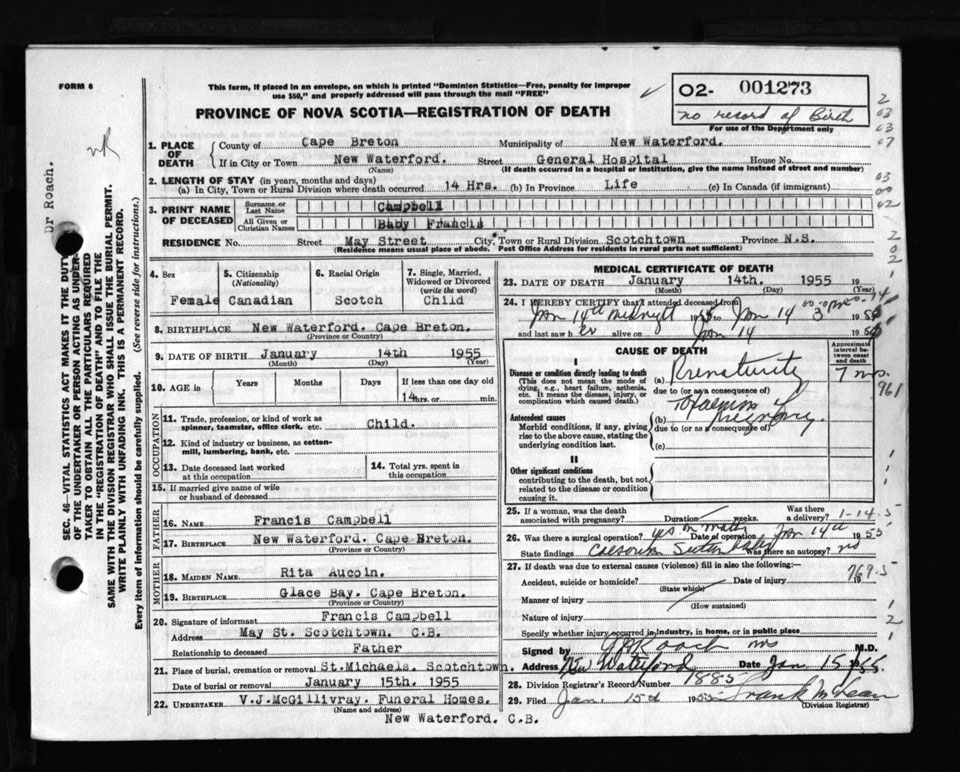 FORM 6
This form, if placed in an envelope, on which is printed "Dominion Statistics—Free, penalty for improper
use $50," and properly addressed will pass through the mail "FREE"
PROVINCE OF NOVA SCOTIA—REGISTRATION OF DEATH
02- 001273
no record of Birth
For use of the Department only
Dr Roach.
SEC. 46—VITAL STATISTICS ACT MAKES IT THE DUTY
OF THE UNDERTAKER OR PERSON ACTING AS UNDER-
TAKER TO OBTAIN ALL THE PARTICULARS REQUIRED
IN THE "REGISTRATION OF DEATH" AND TO FILE THE
SAME WITH THE DIVISION REGISTRAR WHO SHALL ISSUE THE BURIAL PERMIT.
WRITE PLAINLY WITH UNFADING INK. THIS IS A PERMANENT RECORD.
Every item of information should be carefully supplied. (See reverse side for instructions.)
1. PLACE OF DEATH County of Cape Breton Municipality of New Waterford.
If in City or Town New Waterford. Street General Hospital House No.
(Name) (If death occurred in a hospital or institution, give the name instead of street and number)
2. LENGTH OF STAY (in years, months and days)
(a) In City, Town or Rural Division where death occurred 14 Hrs. (b) In Province Life (c) In Canada (if immigrant)
3. PRINT NAME OF DECEASED Surname or Last Name Campbell
All Given or Christian Names Baby Francis
RESIDENCE No. Street May Street City, Town or Rural Division Scotchtown Province N.S.
(Residence means usual place of abode. Post Office Address for residents in rural parts not sufficient)
4. Sex 5. Citizenship (Nationality) 6. Racial Origin 7. Single, Married, Widowed or Divorced (write the word)
Female Canadian Scotch Child
8. BIRTHPLACE New Waterford. Cape Breton.
(Province or Country)
9. DATE OF BIRTH January 14th 1955
(Month) (Day) (Year)
10. AGE in Years Months Days If less than one day old
14 hrs. or min.
OCCUPATION
11. Trade, profession, or kind of work as
spinner, teamster, office clerk, etc. Child.
12. Kind of industry or business, as cotton-
mill, lumbering, bank, etc.
13. Date deceased last worked
at this occupation
14. Total yrs. spent in
this occupation
15. If married give name of wife
or husband of deceased
FATHER
16. NAME Francis Campbell
17. BIRTHPLACE New Waterford. Cape Breton.
(Province or Country)
MOTHER
18. MAIDEN NAME Rita Aucoin.
19. BIRTHPLACE Glace Bay. Cape Breton.
(Province or Country)
20. Signature of informant Francis Campbell
Address May St. Scotchtown. C.B.
Relationship to deceased Father
21. Place of burial, cremation or removal St.Michaels. Scotchtown.
Date of burial or removal January 15th. 1955
22. UNDERTAKER V.J.McGillivray. Funeral Homes.
(Name and address)
New Waterford. C.B.
MEDICAL CERTIFICATE OF DEATH
23. DATE OF DEATH January 14th. 1955 19
(Month) (Day) (Year)
24. I HEREBY CERTIFY that I attended deceased from
Jan 14th midnight 1955 Jan 14 3 pm 195
and last saw her alive on Jan 14 195
CAUSE OF DEATH
Approximate interval between onset and death
I
Disease or condition directly leading to death
(This does not mean the mode of
dying, e.g., heart failure, asthenia,
etc. It means the disease, injury, or
complication which caused death.
(a) Prematurity 7 mo.
due to (or as a consequence of)
961
Antecedent causes
Morbid conditions, if any, giving
rise to the above cause, stating the
underlying condition last.
(b) Toxaemia Pregnancy.
due to (or as a consequence of)
(c)
II
Other significant conditions
contributing to the death, but not
related to the disease or condition
causing it.
25. If a woman, was the death
associated with pregnancy? Duration weeks. Was there a delivery? 1-14-5
26. Was there a surgical operation? yes on mother Date of operation Jan 14th 1955
State findings Was there an autopsy? no
27. If death was due to external causes (violence) fill in also the following:—
Accident, suicide or homicide? Date of injury 19
(State which)
769.5
Manner of injury
(How sustained)
Nature of injury
Specify whether injury occurred in industry, in home, or in public place
Signed by Roach M.D.
Address New Waterford Date Jan. 15 1955.
28. Division Registrar's Record Number 1885
29. Filed Jan. 15th 1955 Frank McLean
(Division Registrar)